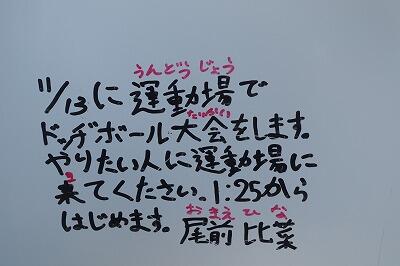 うんどうじょう
11/13に運動場で
たいかい
ドッヂボール大会をします。
やりたい人に運動場に
き
来てください。1:25から
はじめます。
おまえ ひな
尾前 比菜